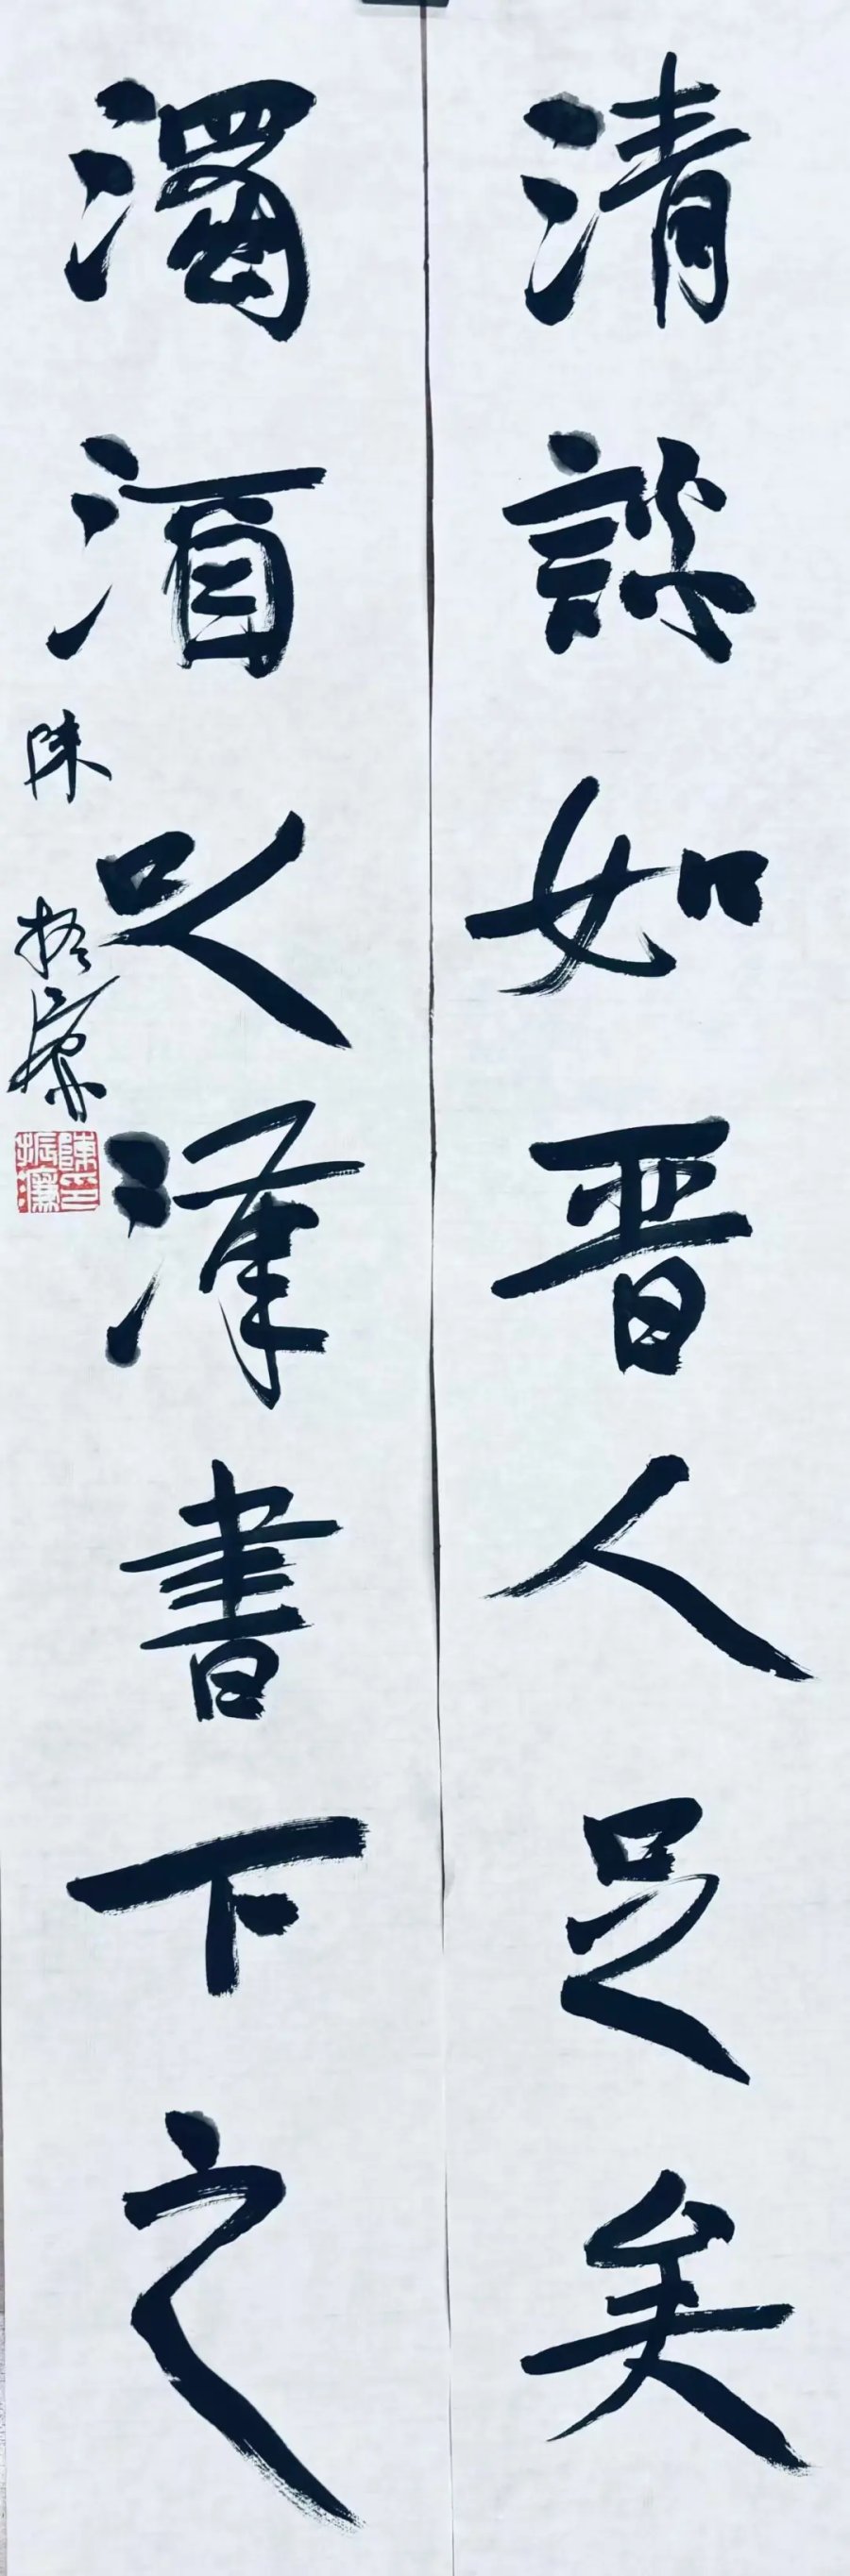 清談如晋人足矣
濁酒以漢書下之
陳振濂
陳振濂印